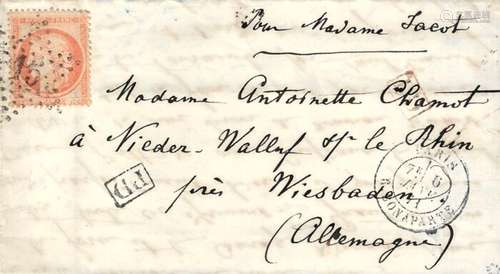 Pour Madame Jacot
Madame Antoinette Chamot
à Nieder-Walluf s/ le Rhin
près Wiesbaden
(Allemagne)
PD
PARIS
7E 6
R. BONAPARTE